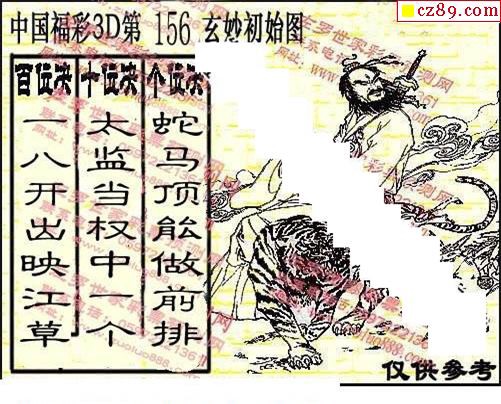 cz89.com
中国福彩3D第 156 玄妙初始图
百位决
一八开出映江草
十位决
太监当权中一个
个位决
蛇马顶能做前排
仅供参考